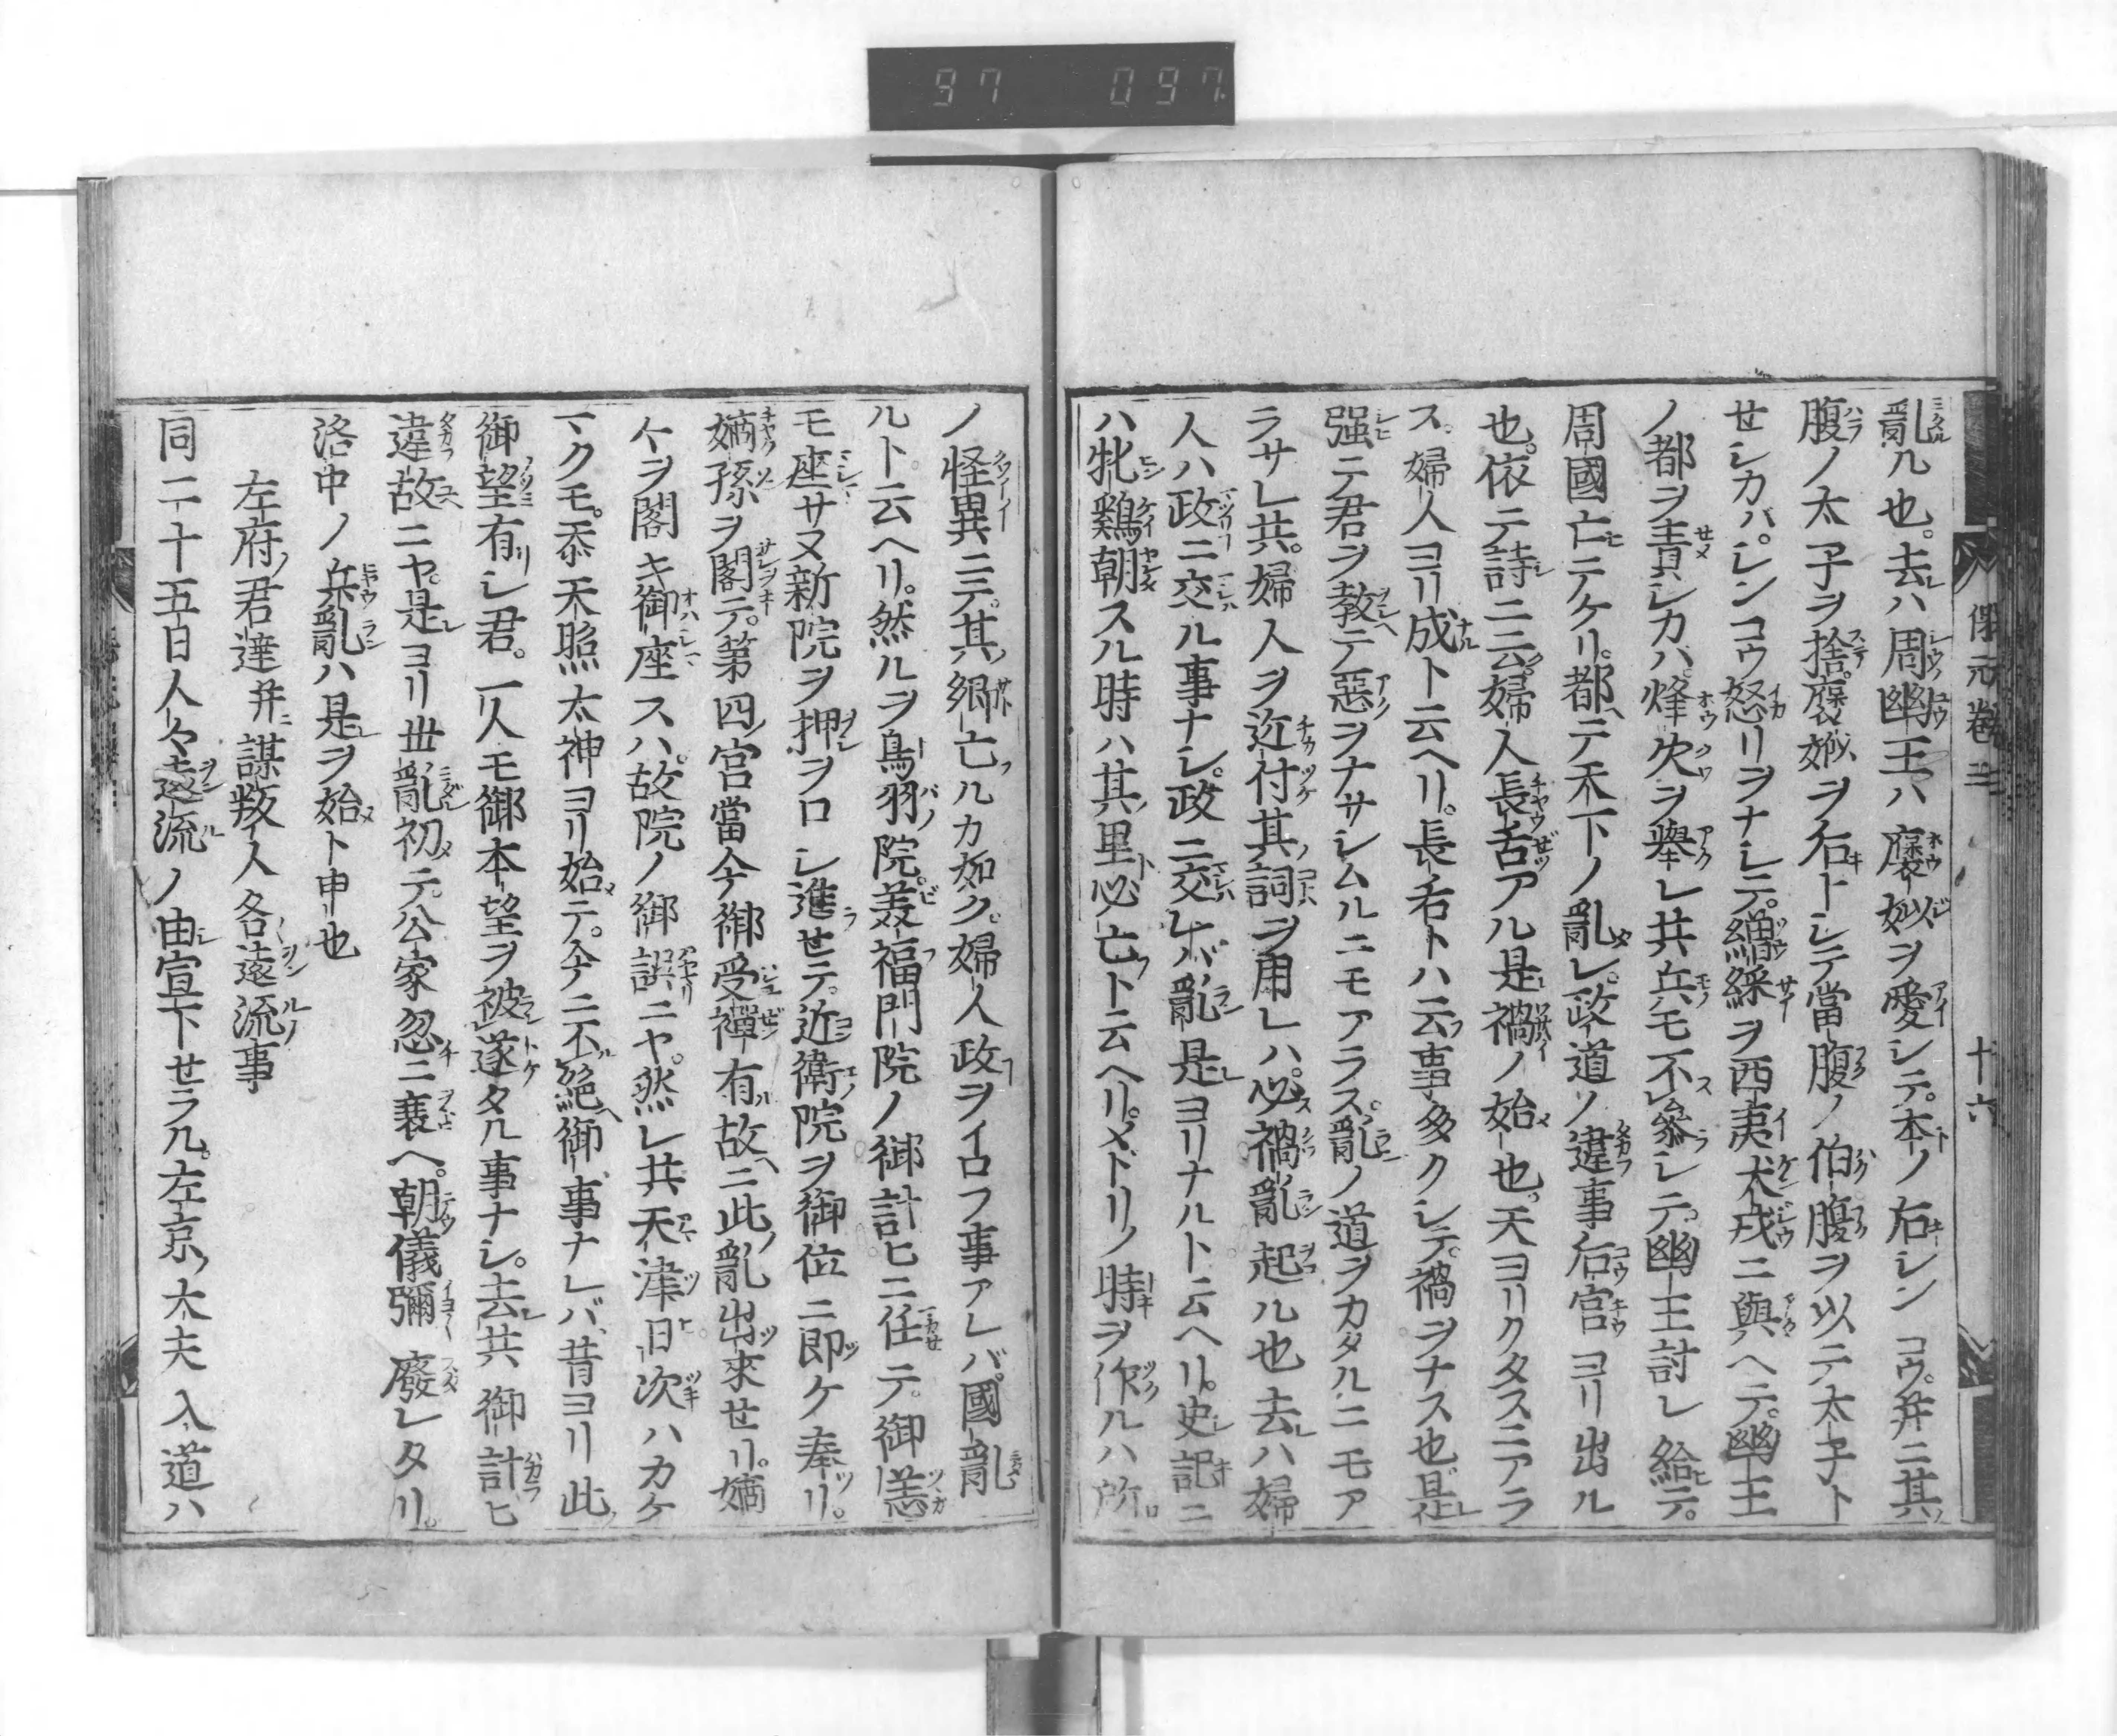 97 097
保元卷三 十六
亂ル也。去ハ周幽王ハ褒姒ヲ愛シテ。本ノ后シンコウ。幷ニ其
腹ノ太子ヲ捨。褒姒ヲ后トシテ當腹ノ伯腹ヲ以テ太子ト
せシカバ。シンコウ怒リヲナシテ。繒綵ヲ西夷犬戎ニ與ヘテ。幽王
ノ都ヲ責シカバ。烽火ヲ擧レ共兵モ不參シテ。幽王討レ給テ。
周國亡ニケリ。都テ天下ノ亂レ。政道ノ違事后宮ヨリ出ル
也。依テ詩ニ云。婦人長舌アル是禍ノ始也。天ヨリクタスニアラ
ス。婦人ヨリ成ト云ヘリ。長舌トハ云事多クシテ。禍ヲナス也。是
强テ君ヲ敎テ惡ヲナサシムルニモアラス。亂ノ道ヲカタルニモア
ラサレ共。婦人ヲ近付其詞ヲ用レハ。必禍亂起ル也。去ハ婦
人ハ政ニ交ル事ナシ。政ニ交レバ亂是ヨリナルト云ヘリ。史記ニ
ハ牝鷄朝スル時ハ其里必亡ト云ヘリ。メドリノ時ヲ作ルハ所
ノ怪異ニテ。其郷亡ルカ如ク。婦人政ヲイロフ事アレバ。國亂
ルト云ヘリ。然ルヲ鳥羽院。美福門院ノ御計ヒニ任テ。御恙
モ座サヌ新院ヲ押ヲロシ進せテ。近衞院ヲ御位ニ即ケ奉リ。
嫡孫ヲ閣テ。第四宮當今御受禪有故ニ此亂出來せリ。嫡
々ヲ閣キ御座スハ。故院ノ御誤ニヤ。然レ共天津日次ハカケ
マクモ。忝天照太神ヨリ始テ。今ニ不絕御事ナレバ。昔ヨリ此
御望有シ君。一人モ御本望ヲ被遂タル事ナシ。去共御計ヒ
違故ニヤ。是ヨリ世亂初テ。公家忽ニ衰ヘ。朝儀彌廢レタリ。
洛中ノ兵亂ハ是ヲ始ト申也
左府君達幷謀叛人各遠流事
同二十五日人々遠流ノ由宣下せラル。左京大夫入道ハ